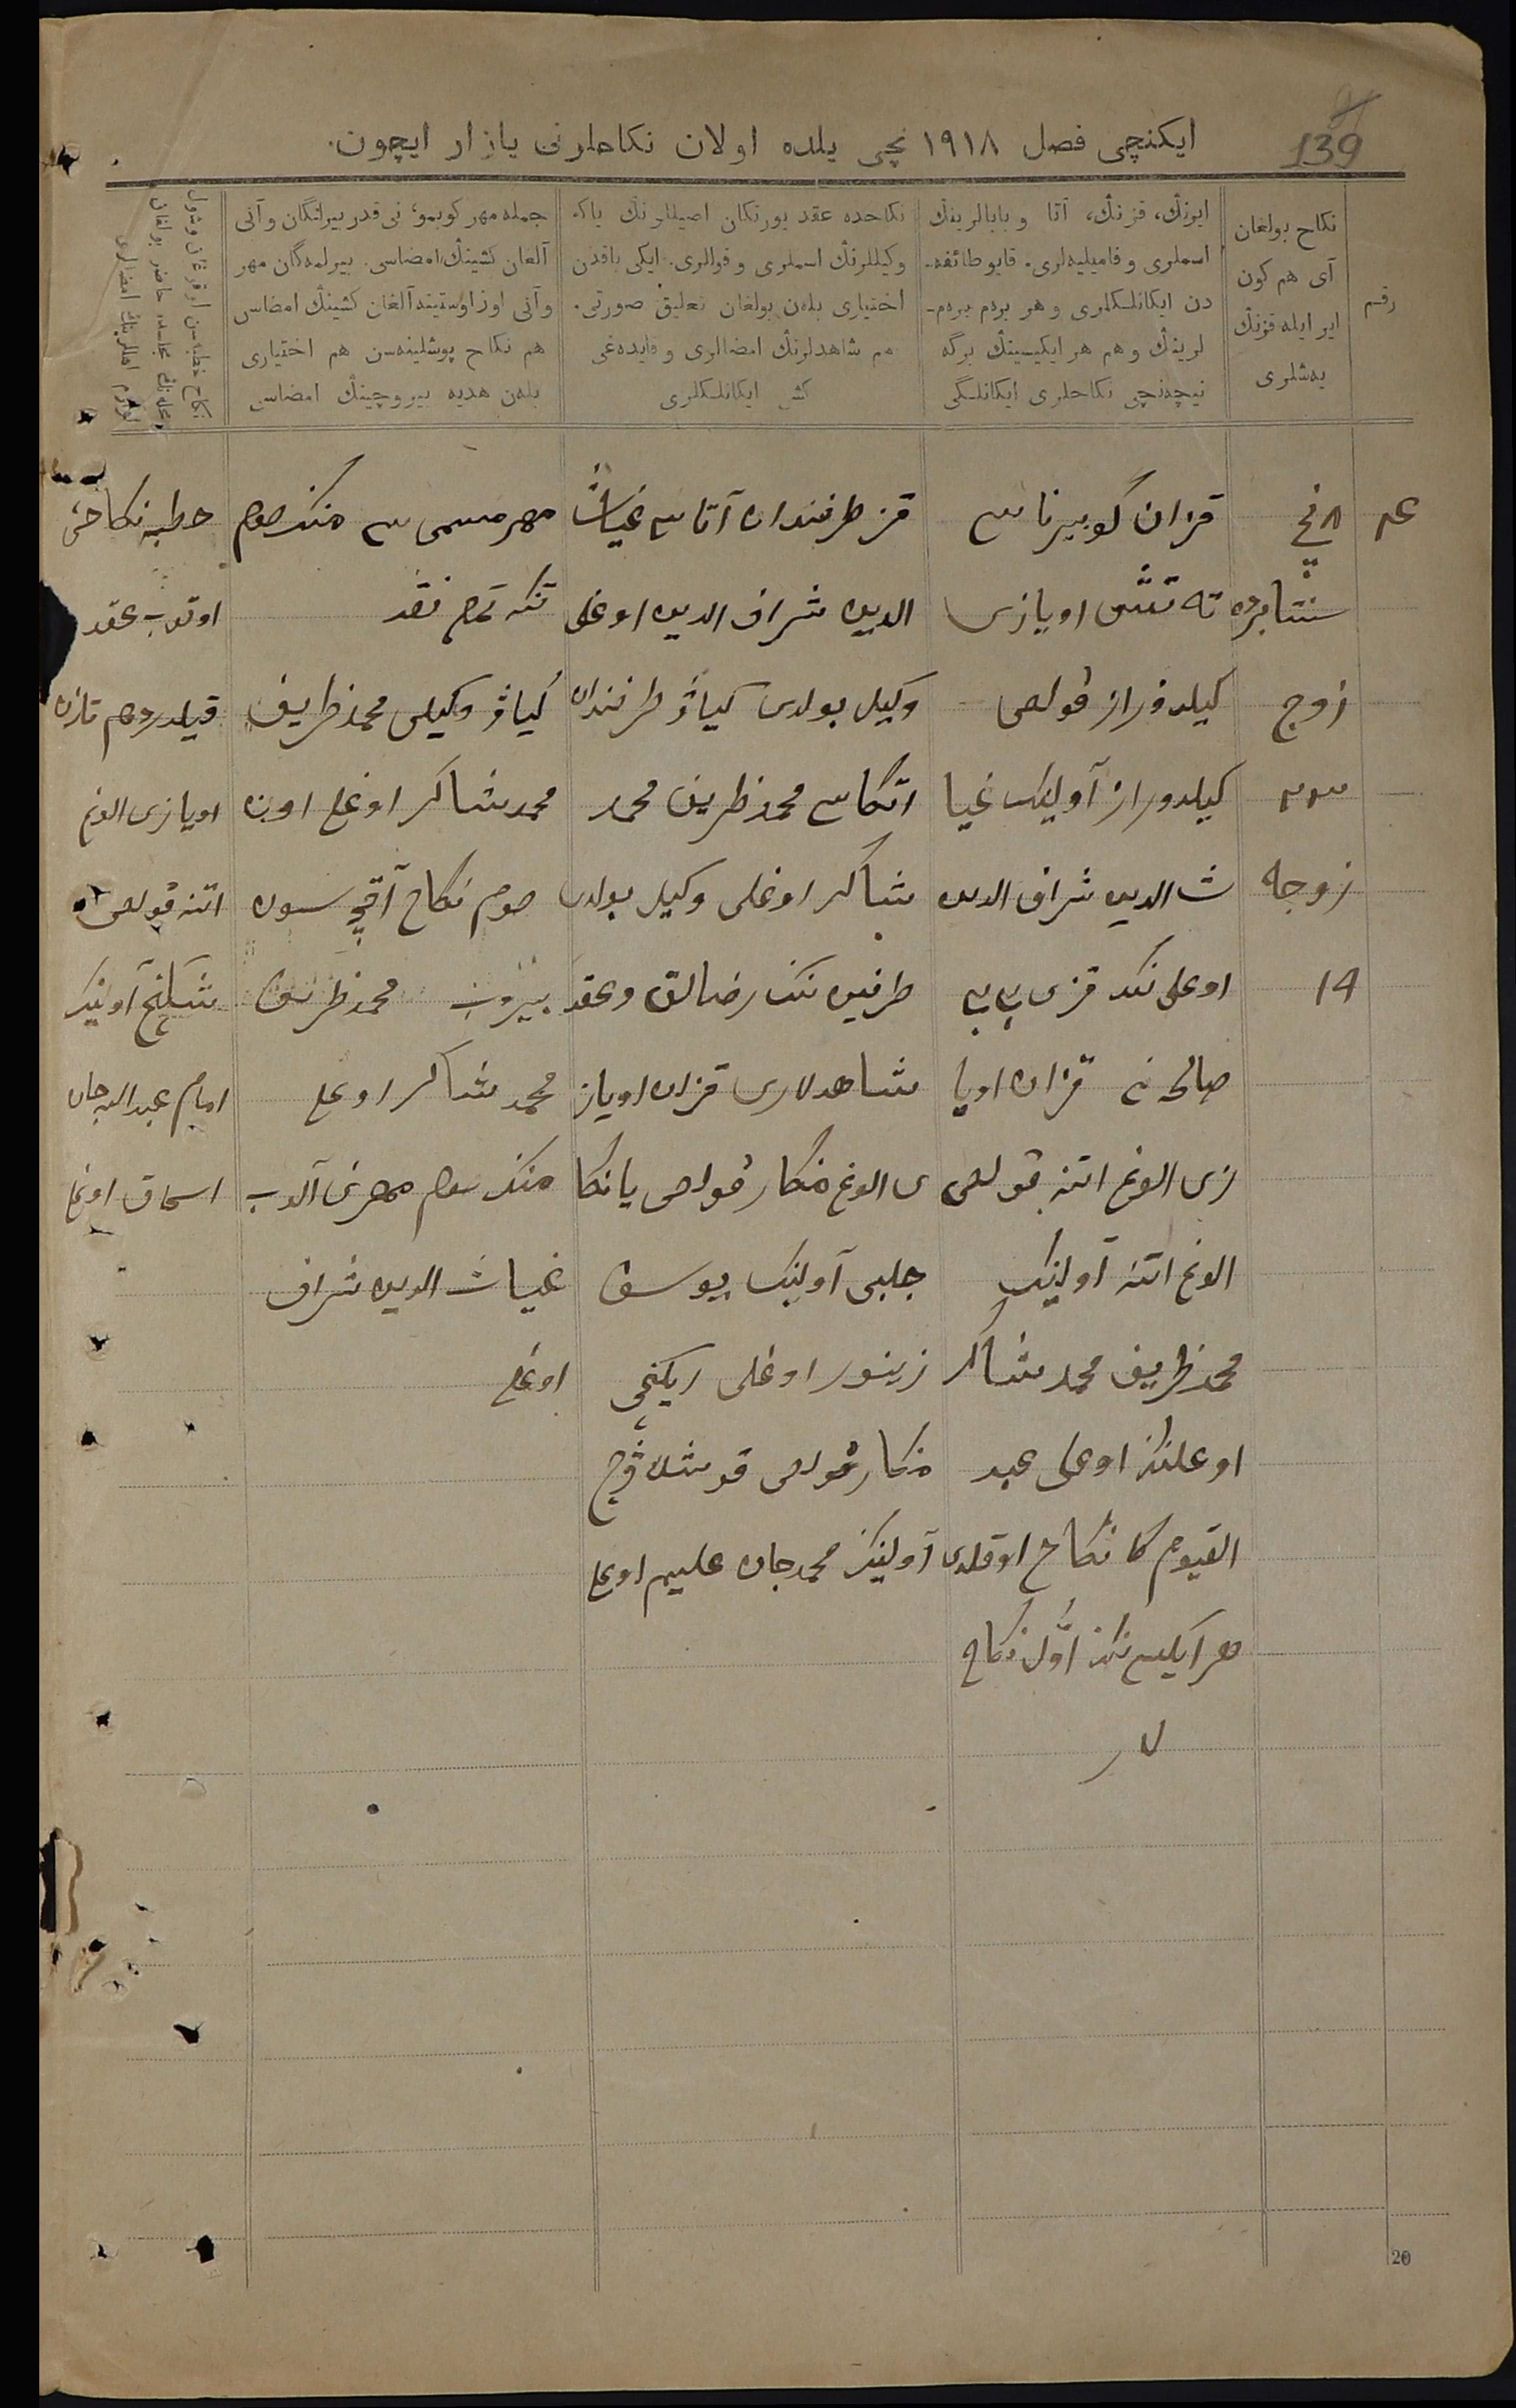 139
ایکنچی فصل ١٩١٨ نچی یلده اولان نکاحلرنی یازار ایچون.
رقم
نکاح بولغان
آی هم کون
ایر ایله قزنڭ
یەشلری
ایرنڭ، قزنڭ، آتا و بابالرینڭ
اسملری و فامیلیەلری. قایو طائفه-
دن ایکانلکلری و هر بردم بردم-
لرینڭ و هم هر ایکیسینڭ برگه
نیچەنچی نکاحلری ایکانلگی
نکاحده عقد یورتکان اصیللرنڭ یاکه
وکیللرنڭ اسملری و قوللری. ایکی یاقدن
اختیاری بلەن بولغان تعلیق صورتی.
هم شاهدلرنڭ امضالری و قایدەغی
کشی ایکانلکلری
جمله مهر کوبمو، نی قدر بیرلنگان و آنی
آلغان کشینڭ امضاسی. بیرلمەگان مهر
و آنی اوز اوستینه آلغان کشینڭ امضاسی
هم نکاح پوشلینەسن هم اختیاری
بلەن هدیه بیروچینڭ امضاسی
٨ نچی
سنتابرده
زوج
٢٣
زوجه
19
قزان گوبیرناسی
تەتش اویازی
کیلدوراز ڤولصی
کیلدوراز آولینڭ غیا
ث الدین شراف الدین
اوغلی ننڭ قزی بی بی
صالحه نی قزان اویا
زی الوغ اتنه ڤولصی
الوغ اتنه آولینڭ
محمد ظریف محمد شاکر
اوغلننڭ اوغلی عبد
القیوم کا نکاح اوقلدی
هر ایکیسی ننڭ اوّل نکاح
لار
قز طرفندان آتاسی غیاث
الدین شراف الدین اوغلی
وکیل بولدی کیاۋ طرفندان
اتکاسی محمد ظریف محمد
شاکر اوغلی وکیل بولدی
طرفین ننڭ رضالق و عقد
شاهدلاری قزان اویاز
ی الوغ منکار ڤولصی یانکا
چلبی آولینڭ یوسف
زینور اوغلی ایکنچی
منکار ڤولصی قوشلاۋچ
آولینڭ محمدجان علیم اوغلی
مهر مسمی سی منڭ صوم
تنکه تمام نقد
کیاۋ وکیلی محمد ظریف
محمد شاکر اوغلی اون
صوم نکاح آقچه سون
بیروب محمد ظریف
محمد شاکر اوغلی
منڭ صوم مهرنی آلوب
غیاث الدین شراف
اوغلی
خطبه نکاحنی
اوقوب عقد
قیلدردم قازان
اویازی الوغ
اتنه ڤولصی
آولینڭ
امام عبدالله جان
اسحاق اوغلی
20